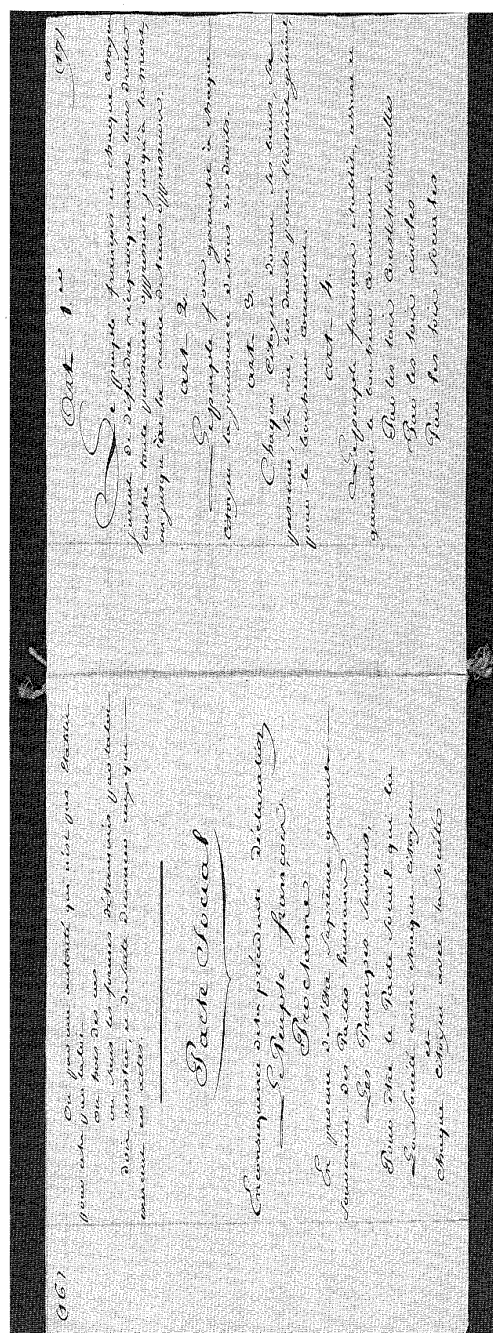 (16)
Ou par une autorité qui n'est pas établie
pour cela par la loi
ou hors des cas
ou sans les formes déterminés par la loi
doit résister, et de suite dénoncer ceux qui
exercent ces actes.
Pacte Social
En conséquence de la précédente déclaration
Le Peuple françois
Proclame
En présence de l'Etre Suprême garant
Souverain des Pactes humains
Les Principes Suivans,
Pour être le Pacte Social qui lie
La Société avec chaque Citoyen
et
chaque Citoyen avec la Société
(17)
Art 1er
Le peuple françois et chaque citoyen
jurent de défendre réciproquement leurs droits
contre toute puissance oppressive jusqu'à la mort
ou jusqu'à la ruine de leurs oppresseurs.
art 2
Le peuple françois garantit à chaque
citoyen la jouissance de tous ses droits.
art 3.
Chaque Citoyen donne ses biens, sa
personne, sa vie, ses droits pour l'intérêt général
pour le bonheur commun.
art 4.
Le peuple françois établit, assure et
garantit le bonheur commun.
Par les loix Constitutionnelles
Par les loix civiles
Par les loix Sociales